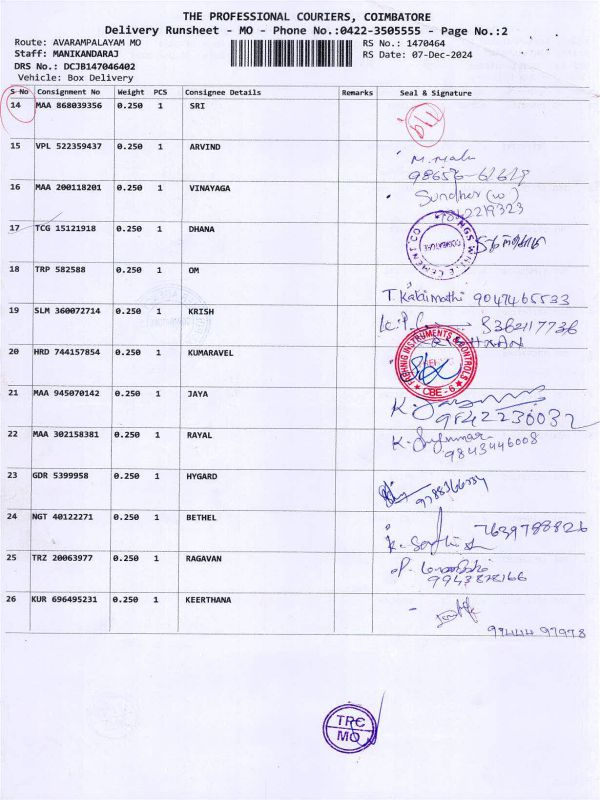 THE PROFESSIONAL COURIERS, COIMBATORE
Delivery Runsheet - MO - Phone No.:0422-3505555 - Page No.:2
Route: AVARAMPALAYAM MO RS No.: 1470464
Staff: MANIKANDARAJ RS Date: 07-Dec-2024
DRS No.: DCJB147046402
Vehicle: Box Delivery
S No Consignment No Weight PCS Consignee Details Remarks Seal & Signature
14 MAA 868039356 0.250 1 SRI
15 VPL 522359437 0.250 1 ARVIND
M. Mali
16 MAA 200118201 0.250 1 VINAYAGA
Sundher (w)
17 TCG 15121918 0.250 1 DHANA
18 TRP 582588 0.250 1 OM
T. Kalaimathi 9047465533
19 SLM 360072714 0.250 1 KRISH
K.P. 8362117736
20 HRD 744157854 0.250 1 KUMARAVEL
INSTRUMENTS & CONTROLS
CBE - 6
21 MAA 945070142 0.250 1 JAYA
9842230032
22 MAA 302158381 0.250 1 RAYAL
9843446008
23 GDR 5399958 0.250 1 HYGARD
24 NGT 40122271 0.250 1 BETHEL
7639788826
25 TRZ 20063977 0.250 1 RAGAVAN
26 KUR 696495231 0.250 1 KEERTHANA
99444 97978
TPC
MO